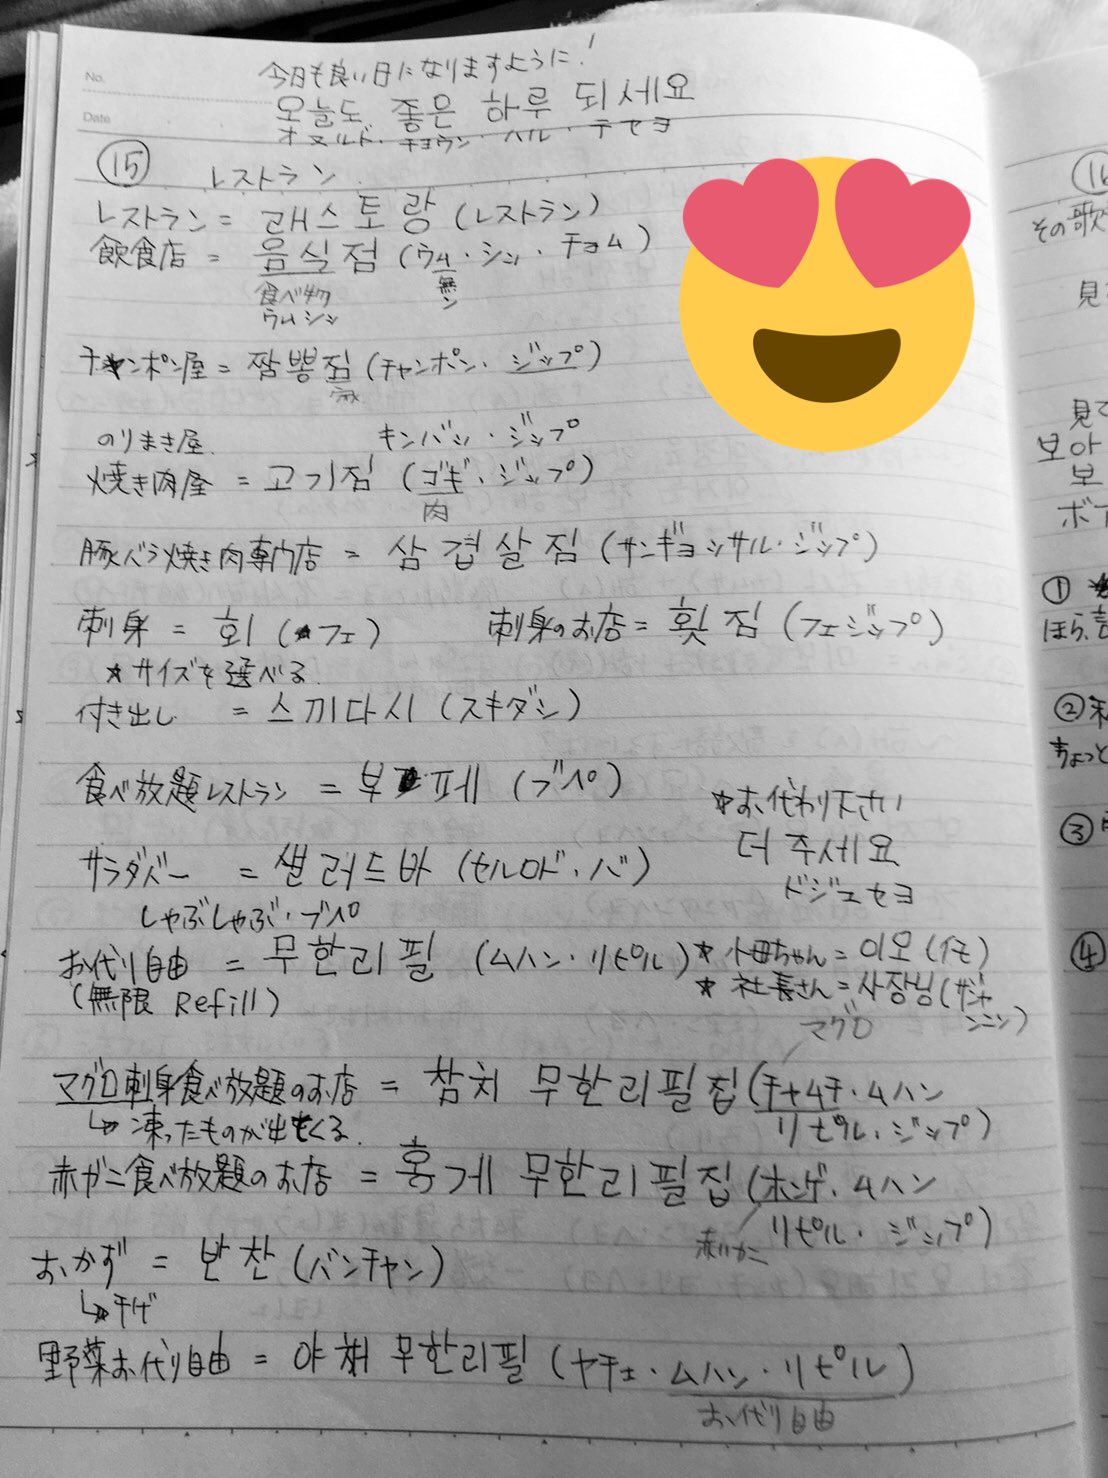 No.
Date
今日も良い日になりますように!
오늘도 좋은 하루 되세요
オヌルド・チョウン・ハル・テセヨ
⑮ レストラン
レストラン = 래스토랑 (レストラン)
飲食店 = 음식점 (ウム・シッ・チョム)
食べ物 無
ウムシッ ン
チャンポン屋 = 짬뽕집 (チャンポン・ジップ)
家
のりまき屋 キンバッ・ジップ
焼き肉屋 = 고기집 (コギ・ジップ)
肉
豚バラ焼き肉専門店 = 삼겹살집 (サンギョッサル・ジップ)
刺身 = 회 (フェ) 刺身のお店 = 횟집 (フェジップ)
★サイズを選べる
付き出し = 스끼다시 (スキダシ)
食べ放題レストラン = 부페 (ブペ)
★お代わり下さい
더 주세요
ドジュセヨ
サラダバー = 샐러드바 (セルロド・バ)
しゃぶしゃぶ・ブペ
お代り自由 = 무한리필 (ムハン・リピル)
(無限 Refill)
★小母ちゃん = 이모 (イモ)
★社長さん = 사장님 (サジャンニン)
マグロ
マグロ刺身食べ放題のお店 = 참치 무한리필집 (チャムチ・ムハン
リピル・ジップ)
↳凍ったものが出てくる.
赤ガニ食べ放題のお店 = 홍게 무한리필집 (ホンゲ・ムハン
リピル・ジップ)
赤いカニ
おかず = 반찬 (バンチャン)
↳チゲ
野菜お代り自由 = 야채 무한리필 (ヤチェ・ムハン・リピル)
お代り自由
その歌
見
見て
보아
보
ボア
①
ほら、
②
ちょっと
③
④